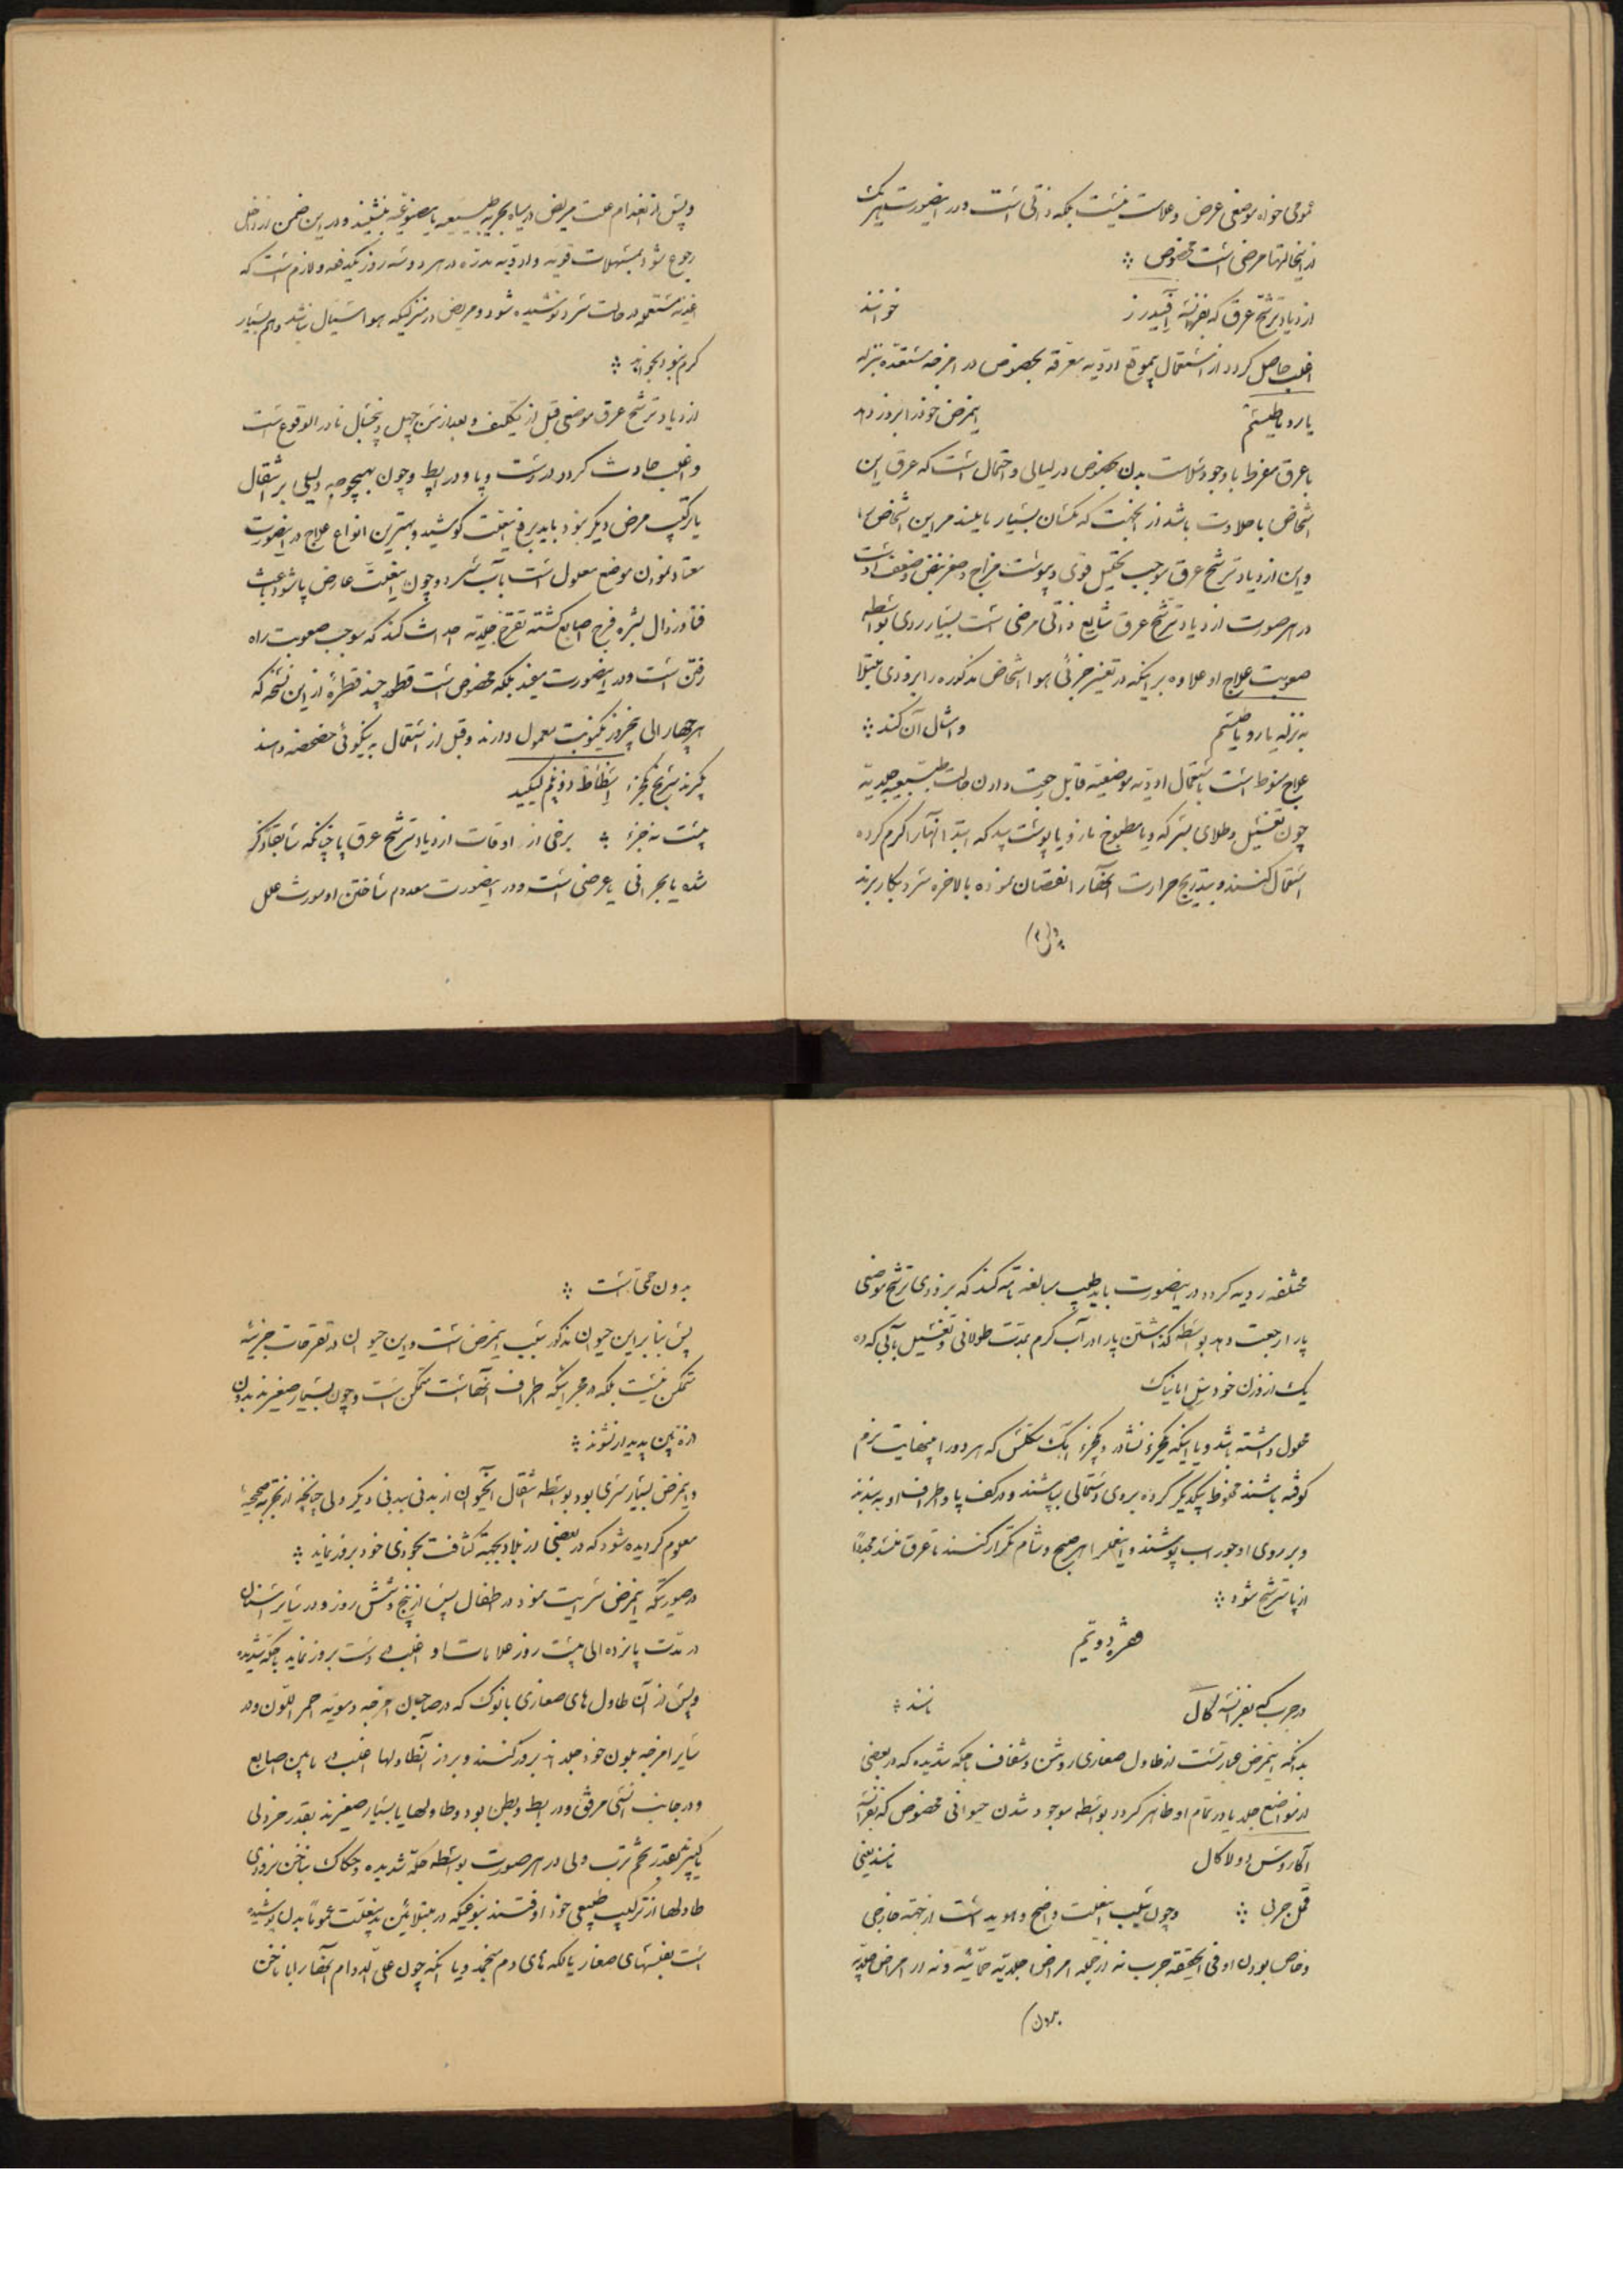 عمومی خواه موضعی عرض و علامت نیست بلکه ذاتی است و در اینصورت هر یک
از اینحالتها مرضی است مخصوص
ازدیاد ترشح عرق که بفرانسه خوانند
اغلب حاصل گردد از استعمال ادویه معرقه بخصوص در امزجه مستعده بنزله
یا روماطیسم اینمرض خود را بروز دهد
با عرق مفرط با وجود سلامت بدن بخصوص در لیالی و احتمال است که عرق این
اشخاص با حلاوت باشد از اینجهت که مگسان بسیار مایلند مر این اشخاص را
و این ازدیاد ترشح عرق موجب تحلیل قوی و یبوست مزاج و صغر نبض و ضعف اوست
در هر صورت ازدیاد ترشح عرق شایع ذاتی مرضی است بسیار ردی بواسطه
صعوبت علاج او علاوه بر اینکه در تغییر جزئی هوا اشخاص مذکوره را بزودی مبتلا
به نزله یا روماطیسم و امثال آن کند
علاج منوط است باستعمال ادویه موضعیه قابل رجعت دادن حالت طبیعیه جلدیه
چون تغسیل و طلای بسرکه و یا مطبوخ مازو یا پوست بید که ابتدا آنها را گرم کرده
استعمال کنند و بتدریج حرارت آنها را نقصان نموده بالاخره سرد بکار برند
و پس از انعدام علت مریض در میاه بحریه طبیعیه یا مصنوعیه بنشیند و در این ضمن از داخل
رجوع شود بمسهلات قویه و ادویه مدره در هر دو سه روز یکدفعه و لازم است که
اغذیه مستعمله در حالت سرد نوشیده شود و مریض در منزلیکه هوا سیال باشد و هم بسیار
گرم نبود بخوابد
ازدیاد ترشح عرق موضعی قبل از تکلیف و بعد از سن چهل و پنجسال نادر الوقوع است
و اغلب حادث گردد در دست و پا و در ابط و چون بهیچوجه دلیلی بر انتقال
یا ترکیب مرض دیگر نبود باید برفع اینعلت کوشید و بهترین انواع علاج در اینصورت
معتاد نمودن موضع معلول است بآب سرد و چون اینعلت عارض پا شود باعث
فنا و زوال بشره فرج اصابع گشته تقرح جلدیه احداث کند که موجب صعوبت راه
رفتن است و در اینصورت مفید بلکه مخصوص است قطور چند قطرهٔ از این نسخه که
هر چهار الی پنجروز یکنوبت معمول دارند و قبل از استعمال به نیکوئی
بیست نه جزء برخی از اوقات ازدیاد ترشح عرق پا چنانکه سابقاً ذکر
شده یا بحرانی یا عرضی است و در اینصورت معدوم ساختن او مورث علل
مختلفه ردیه گردد در اینصورت باید طبیب مبالغه تامه کند که بزودی ترشح موضعی
پا را رجعت دهد بواسطه گذاشتن پا را در آب گرم بمدت طولانی و تغسیل بآبی که ده
یک از وزن خود
محلول داشته باشد و یا اینکه یکجزء نشادر و یکجزء آهک مکلس که هر دو را بنهایت نرم
کوفته باشند مخلوط بیکدیگر کرده بروی دستمالی بپاشند و در کف پا و اطراف او به بندند
و بر روی او جوراب پوشند و اینعمل را هر صبح و شام تکرار کنند تا عرق مجدداً
از پا ترشح شود
فقره دویم
در جرب که بفرانسه گال نامند
بدانکه اینمرض عبارتست از طاول صغاری روشن و شفاف با حکه شدیده که در بعضی
از مواضع جلد یا در تمام او ظاهر گردد بواسطه موجود شدن حیوانی مخصوص که بفرانسه
آکاروس دولاگال نامند یعنی
قمل جربی و چون سبب اینعلت واضح و هویدا است از جهته خارجی
و خاص بودن او فی الحقیقه جرب نه از جمله امراض جلدیه حمائیه و نه از امراض جلدیه
بدون
بدون حمی است
پس بنا بر این حیوان مذکور سبب اینمرض است و این حیوان در تقرحات جزئیه
متمکن نیست بلکه در مجرائیکه اطراف آنها است متمکن است و چون بسیار صغیرند بدون
ذره بین پدیدار نشوند
و اینمرض بسیار مسری بود بواسطه انتقال اینحیوان از بدنی ببدنی دیگر ولی چنانچه از تجربه صحیحه
معلوم گردیده شود که در بعضی از بلاد بجهته کثافت بخودی خود بروز نماید
در صورتیکه اینمرض سرایت نمود در اطفال پس از پنج و شش روز و در سایر اسنان
در مدت پانزده الی بیست روز علامات او اغلب در دست بروز نماید با حکه شدیده
و پس از آن طاول های صغاری با نوک که در صاحبان امزجه دمویه احمر اللون و در
سایر امزجه بلون خود جلد اند بروز کنند و بروز آنطاولها اغلب در مابین اصابع
و در جانب انسی مرفق و در ابط و بطن بود و طاولها یا بسیار صغیرند بقدر خردلی
یا کبیر بقدر تخم ترب ولی در هر صورت بواسطه حکه شدیده و حکاک بناخن بزودی
طاولها از ترکیب طبیعی خود اوفتند بنوعیکه در مبتلائین بدینعلت عموماً بدن پوشیده
است بنفشهای صغار یا لکه های دم منجمد و یا آنکه چون علی الدوام آنها را با ناخن